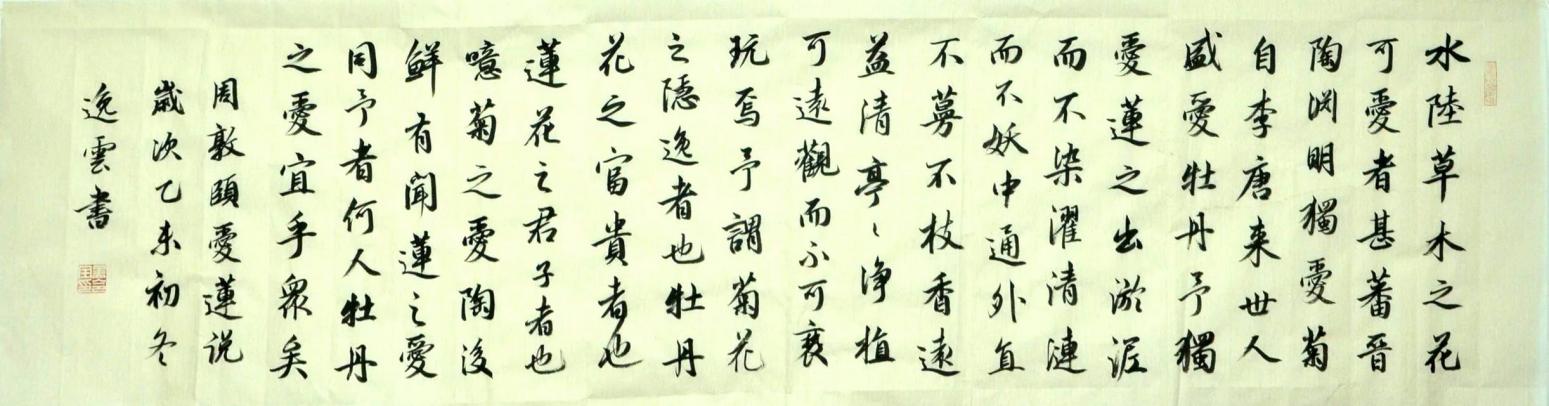 水陸草木之花
可愛者甚蕃晉
陶渊明獨愛菊
自李唐来世人
盛愛牡丹予獨
愛蓮之出淤泥
而不染濯清漣
而不妖中通外直
不蔓不枝香遠
益清亭〻淨植
可遠觀而不可褻
玩焉予謂菊花
之隱逸者也牡丹
花之富貴者也
蓮花之君子者也
噫菊之愛陶後
鮮有聞蓮之愛
同予者何人牡丹
之愛宜乎眾矣
周敦頤愛蓮说
歲次乙未初冬
逸雲書